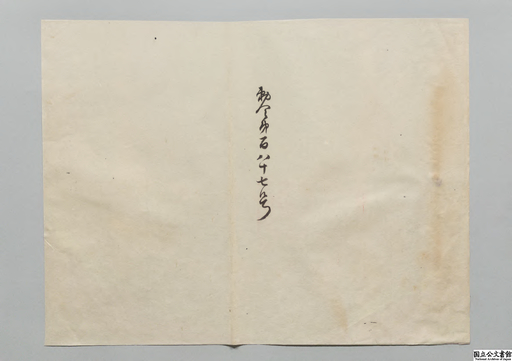 勅令第百八十七号
国立公文書館
National Archives of Japan